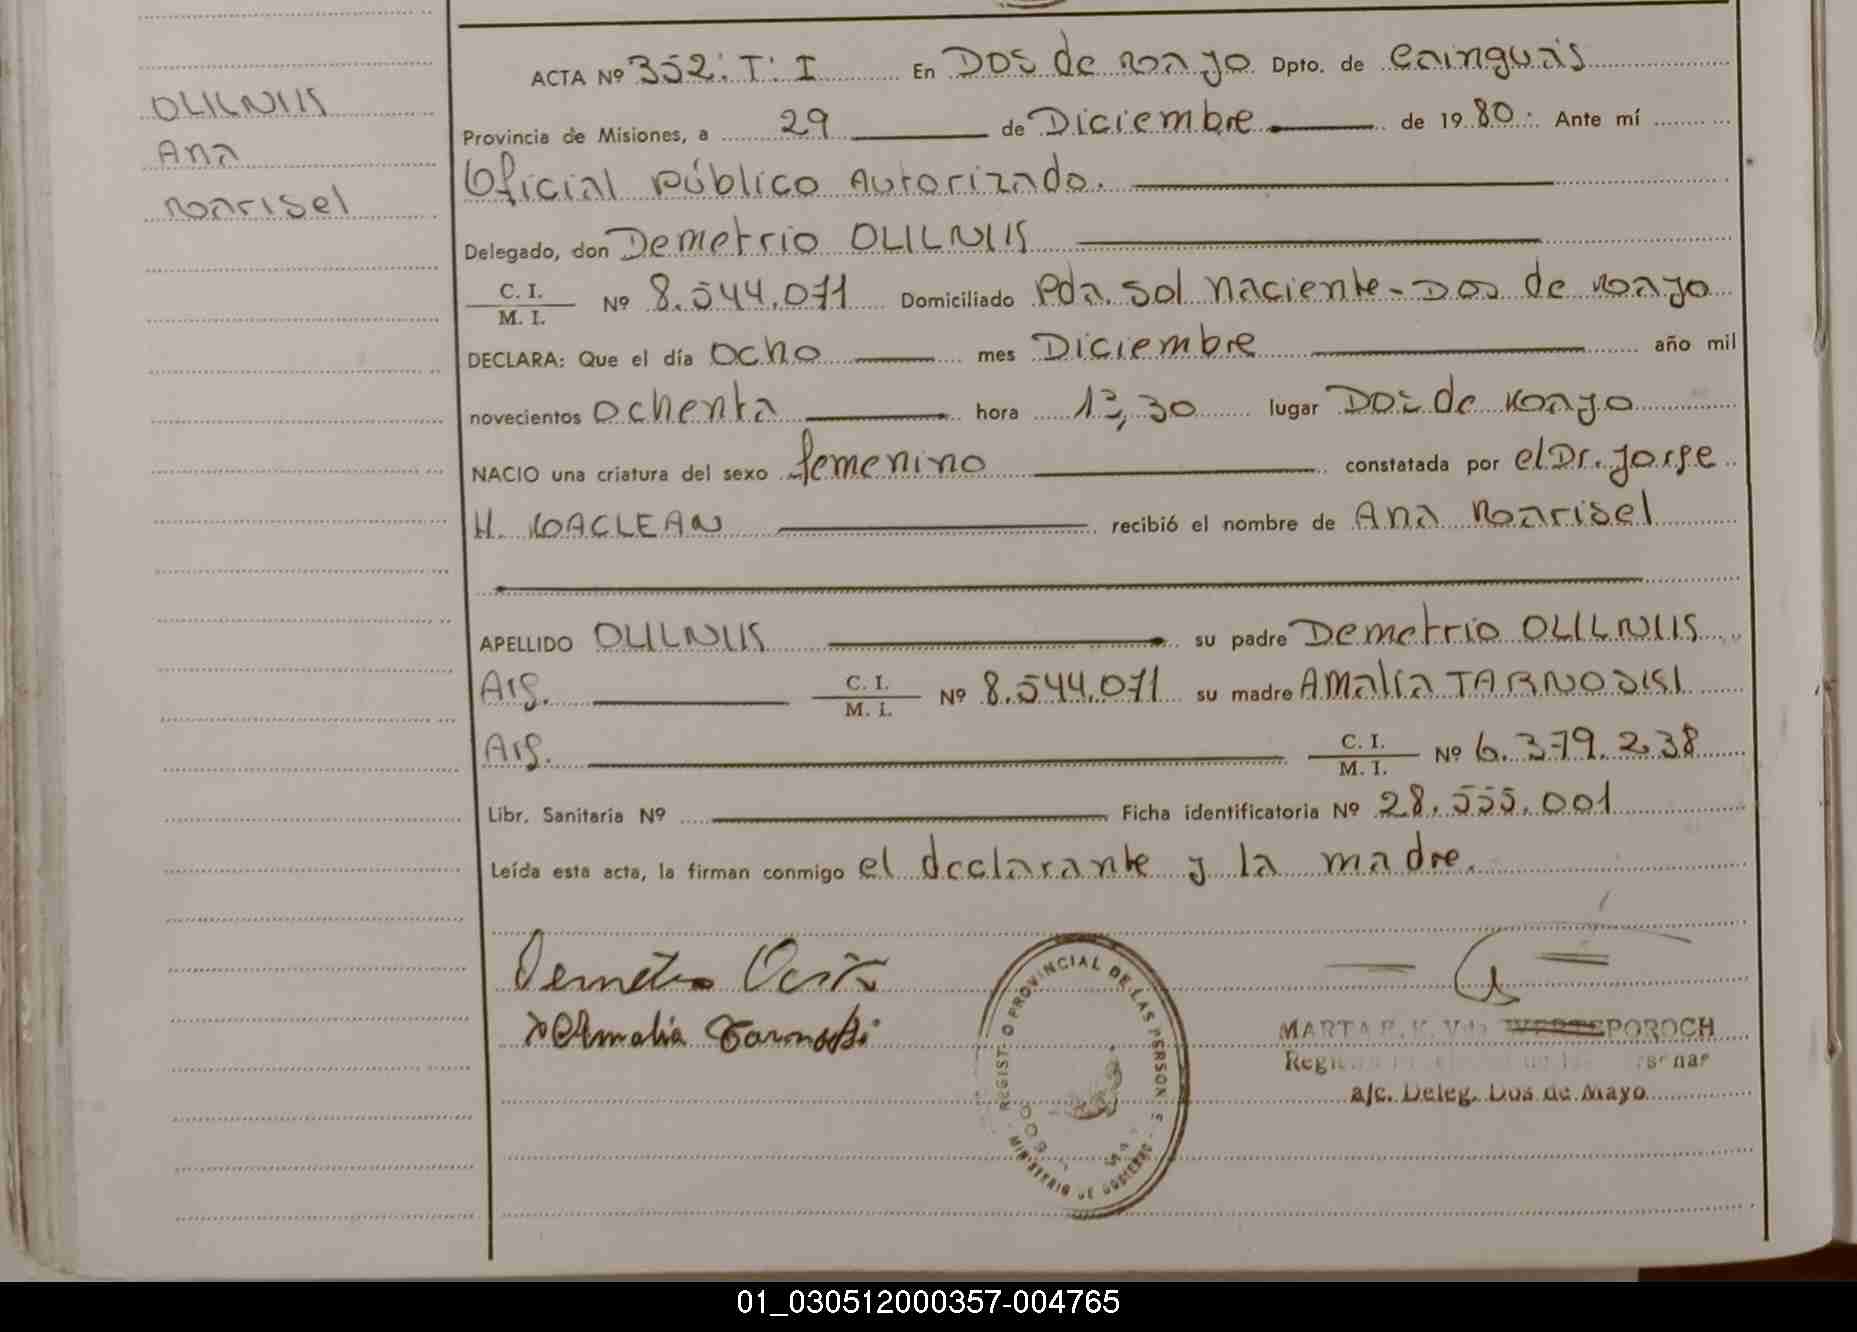 OLILNIIS
Ana
Marisel
ACTA Nº 352: T: I En Dos de Mayo Dpto. de Cainguás
Provincia de Misiones, a 29 de Diciembre de 1980. Ante mí
Oficial Público Autorizado.
Delegado, don Demetrio OLILNIIS
C. I.
M. I. Nº 8.544.071 Domiciliado Pda. Sol Naciente - Dos de Mayo
DECLARA: Que el día ocho mes Diciembre año mil
novecientos ochenta hora 13,30 lugar Dos de Mayo
NACIO una criatura del sexo femenino constatada por el Dr. Jorge
H. MACLEAN recibió el nombre de Ana Marisel
APELLIDO OLILNIIS su padre Demetrio OLILNIIS
Arg. C. I.
M. I. Nº 8.544.071 su madre Amalia TARNOSISI
Arg. C. I.
M. I. Nº 6.379.238
Libr. Sanitaria Nº Ficha identificatoria Nº 28.555.001
Leída esta acta, la firman conmigo el declarante y la madre.
Demetrio
Amalia
REGISTRO PROVINCIAL DE LAS PERSONAS
MINISTERIO DE GOBIERNO
MARTA POROCH
a/c. Deleg. Dos de Mayo
01_030512000357-004765